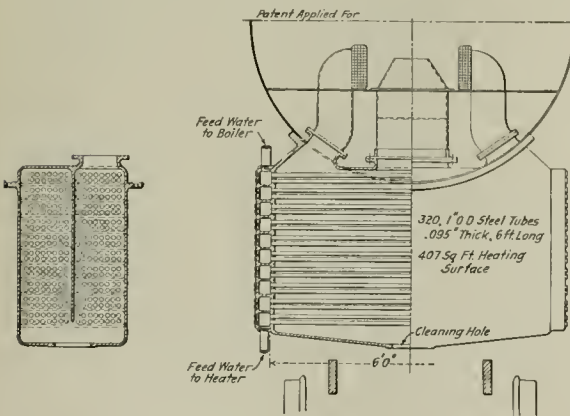 Patent Applied For
Feed Water
to Boiler
320, 1" O D Steel Tubes
.095" Thick, 6 ft. Long
407 Sq Ft. Heating
Surface
Cleaning Hole
Feed Water
to Heater
6'0"